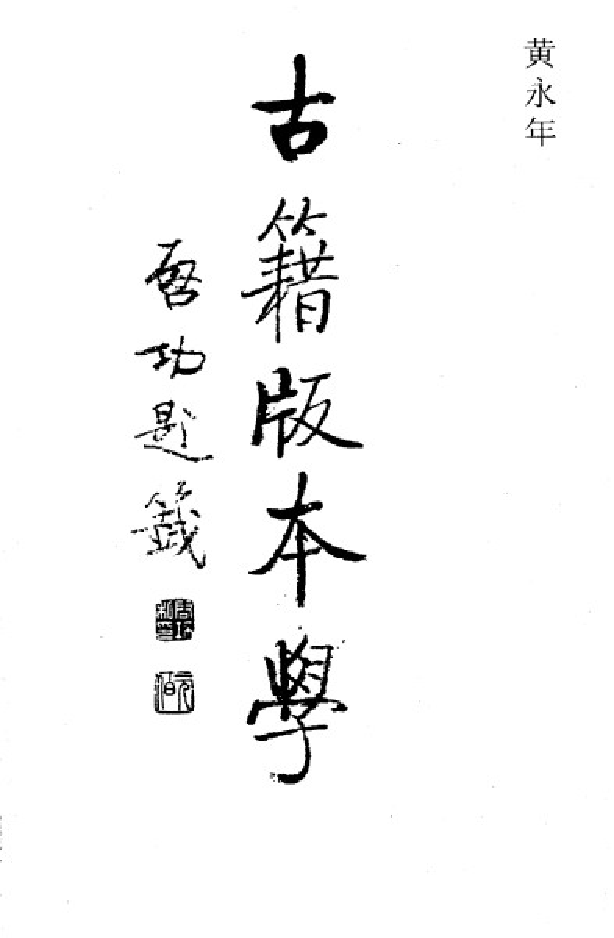 黄永年
古籍版本學
啓功題籤